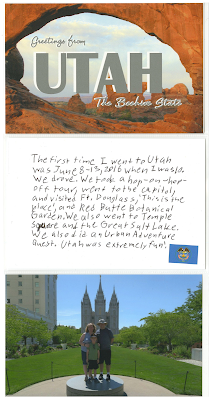 Greetings from
UTAH
The Beehive State
The first time I went to Utah
was June 8-13, 2016 when I was 10.
We drove. We took a hop-on-hop-
off tour, went to the capitol,
and visited Ft. Douglass, This is the
place!, and Red Butte Botanical
Garden. We also went to Temple
Square and the Great Salt Lake.
We also did an Urban Adventure
Quest. Utah was extremely fun!